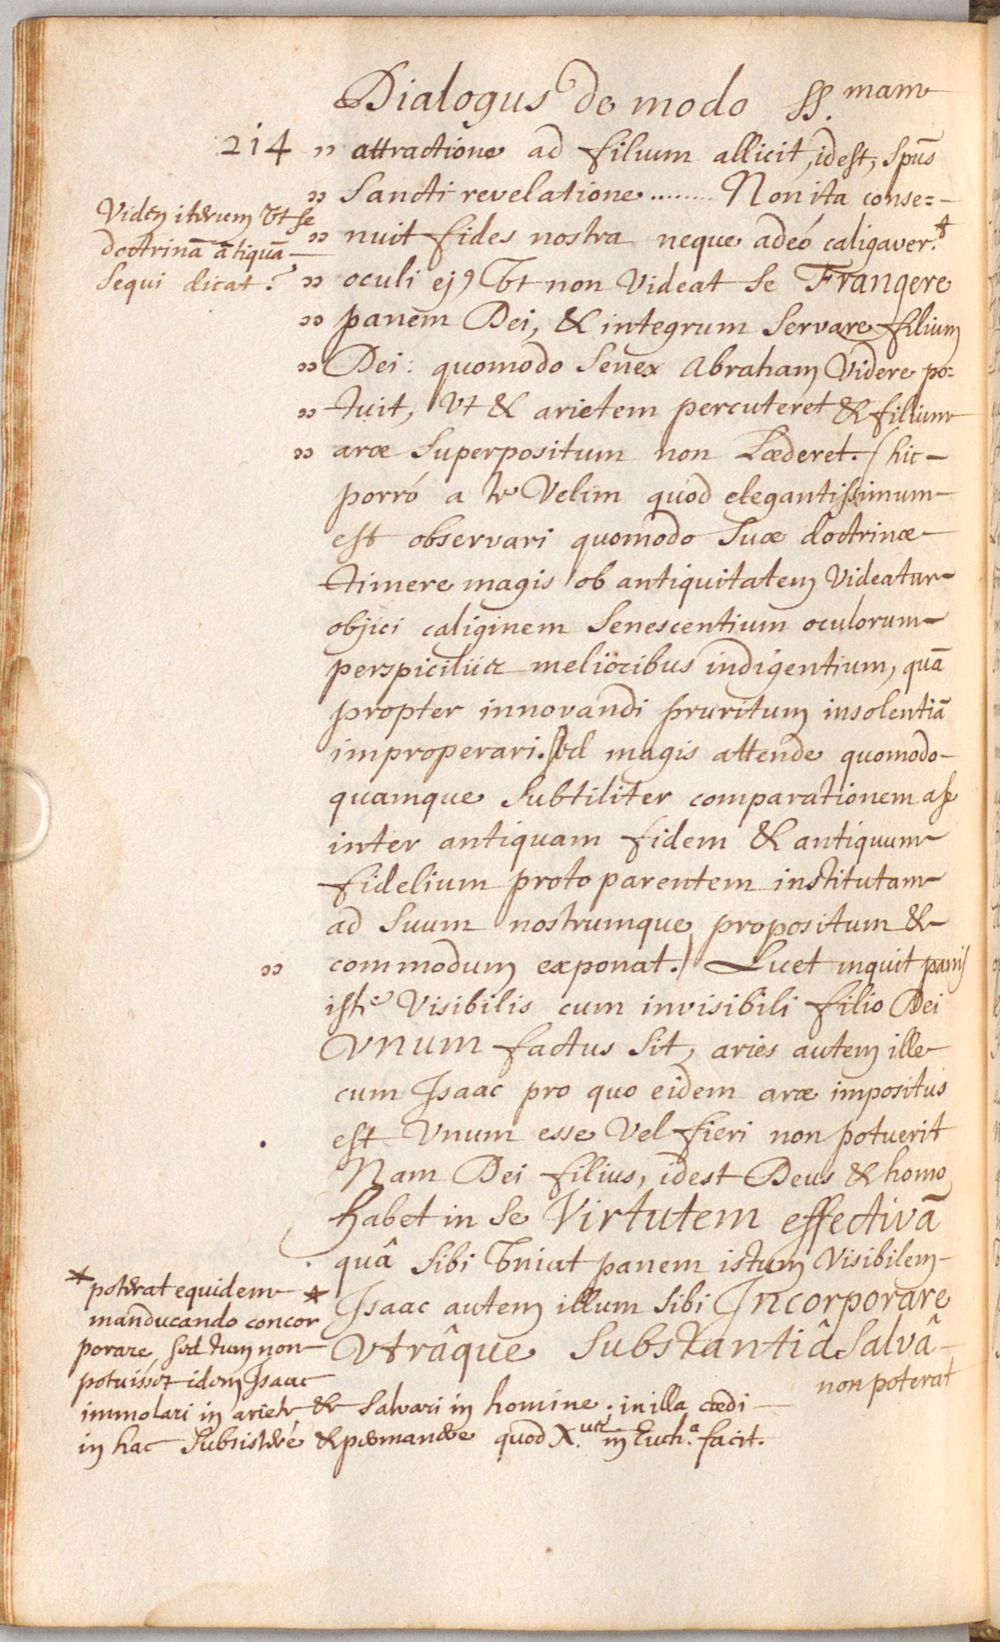 Dialogus de modo SS.mam
214
" attractione ad filium allicit, idest, Spūs
" Sancti revelatione ........ Non ita conse=
" nuit fides nostra neque adeó caligaver.t
" oculi ej9 Vt non Videat se Frangere
" panem Dei, & integrum servare filium
" Dei: quomodo Senex Abraham Videre po=
" tuit, Vt & arietem percuteret & filium
" aræ superpositum non Læderet. (hic
porró a te Velim quod elegantissimum
est observari quomodo suæ doctrinæ
timere magis ob antiquitatem Videatur
objici caliginem Senescentium oculorum
perspiciliis melioribus indigentium, quā
propter innovandi pruritum insolentiā
improperari. sed magis attende quomodo
quamque subtiliter comparationem ase
inter antiquam fidem & antiquum
fidelium protoparentem institutam
ad suum nostrumque propositum &
" commodum exponat.) Licet inquit panis
iste Visibilis cum invisibili filio Dei
VNUM factus sit, aries autem ille
cum Isaac pro quo eidem aræ impositus
est Vnum esse Vel fieri non potuerit
Nam Dei filius, idest Deus & homo
habet in se Virtutem effectivā
quâ sibi Vniat panem istum Visibilem
* Isaac autem illum sibi Incorporare
Vtrâque Substantiâ Salvâ
non poterat
Viden iterum Vt se
doctrinā ātiquā
sequi dicat?
* poterat equidem
manducando concor
porare sed tum non
potuisset idem Isaac
immolari in ariete & salvari in homine: in illa cædi
in hac subsistere & permanere quod X.us in Euch.a facit.